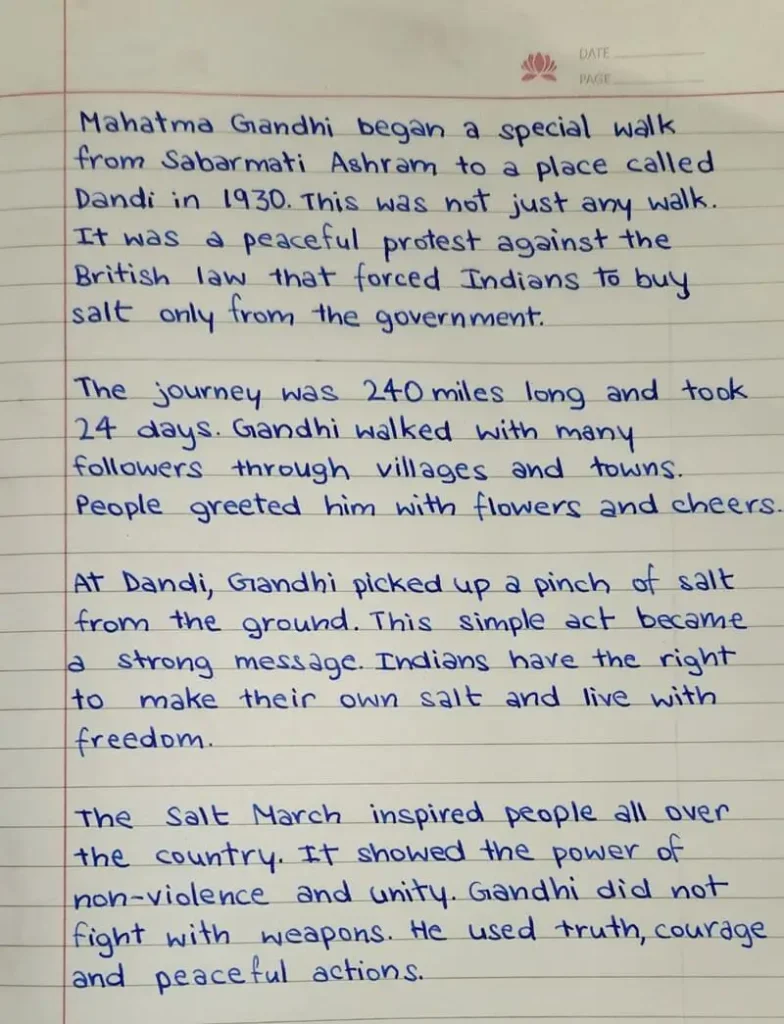 DATE
PAGE
Mahatma Gandhi began a special walk
from Sabarmati Ashram to a place called
Dandi in 1930. This was not just any walk.
It was a peaceful protest against the
British law that forced Indians to buy
salt only from the government.
The journey was 240 miles long and took
24 days. Gandhi walked with many
followers through villages and towns.
People greeted him with flowers and cheers.
At Dandi, Gandhi picked up a pinch of salt
from the ground. This simple act became
a strong message. Indians have the right
to make their own salt and live with
freedom.
The Salt March inspired people all over
the country. It showed the power of
non-violence and unity. Gandhi did not
fight with weapons. He used truth, courage
and peaceful actions.